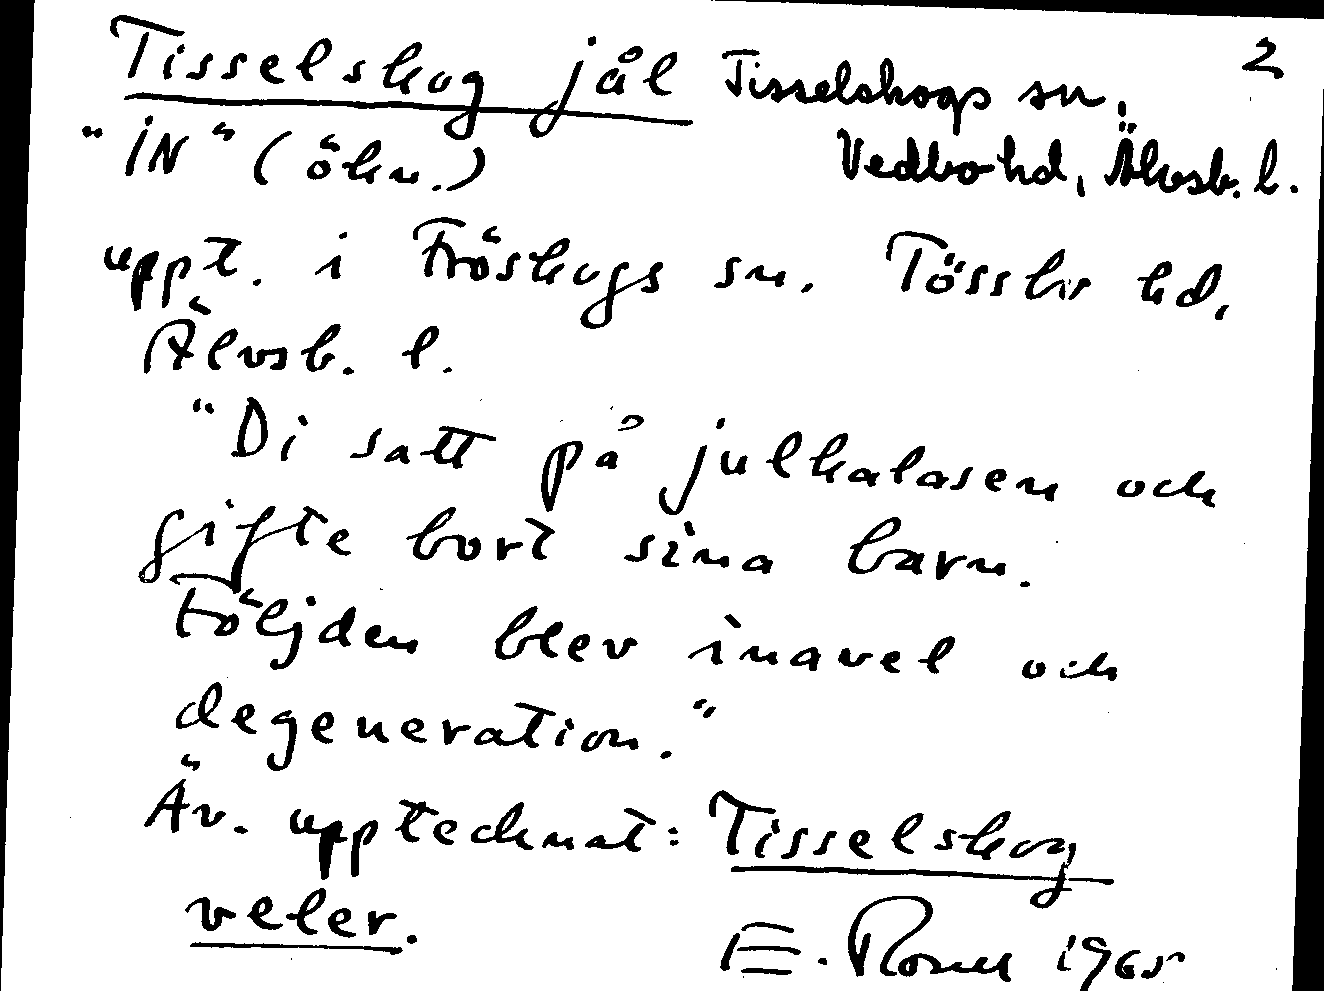 Tisselskog jål Tisselskogs sn, 2
"IN" (ökn.) Vedbo hd, Älvsb. l.
uppt. i Fröskogs sn. Tössbo hd,
Älvsb. l.
"Di satt på julkalasen och
gifte bort sina barn.
Följden blev inavel och
degeneration."
Äv. upptecknat: Tisselskog
veler.
E. 1965